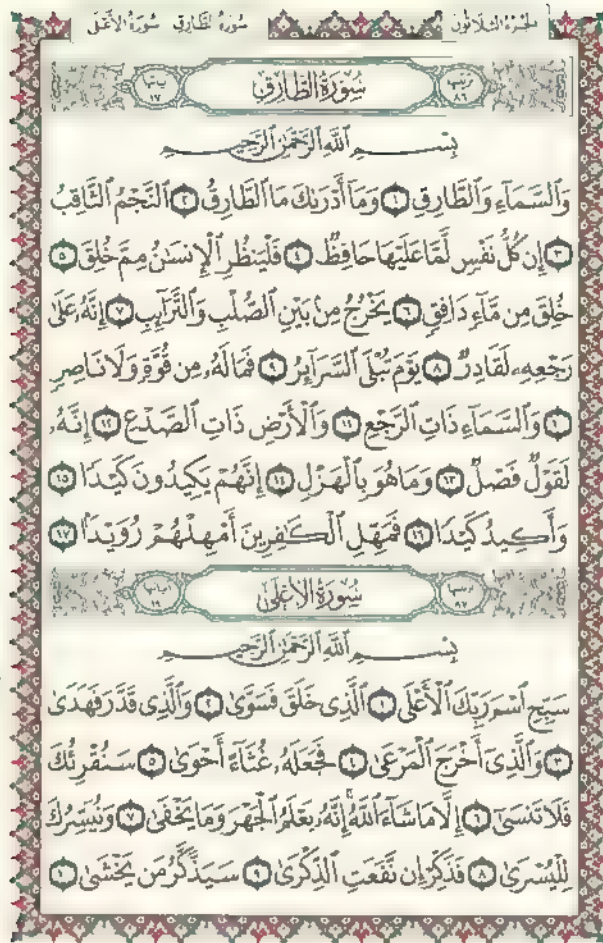 الجزء الثلاثون سورة الطارق سورة الأعلى
ترتيبها ٨٦ سُورَةُ الطَّارِقِ آياتها ١٧
بِسْمِ ٱللَّهِ ٱلرَّحْمَٰنِ ٱلرَّحِيمِ
وَٱلسَّمَآءِ وَٱلطَّارِقِ ١ وَمَآ أَدْرَىٰكَ مَا ٱلطَّارِقُ ٢ ٱلنَّجْمُ ٱلثَّاقِبُ
٣ إِن كُلُّ نَفْسٍ لَّمَّا عَلَيْهَا حَافِظٌ ٤ فَلْيَنظُرِ ٱلْإِنسَٰنُ مِمَّ خُلِقَ ٥
خُلِقَ مِن مَّآءٍ دَافِقٍ ٦ يَخْرُجُ مِنۢ بَيْنِ ٱلصُّلْبِ وَٱلتَّرَآئِبِ ٧ إِنَّهُۥ عَلَىٰ
رَجْعِهِۦ لَقَادِرٌ ٨ يَوْمَ تُبْلَى ٱلسَّرَآئِرُ ٩ فَمَا لَهُۥ مِن قُوَّةٍ وَلَا نَاصِرٍ
١٠ وَٱلسَّمَآءِ ذَاتِ ٱلرَّجْعِ ١١ وَٱلْأَرْضِ ذَاتِ ٱلصَّدْعِ ١٢ إِنَّهُۥ
لَقَوْلٌ فَصْلٌ ١٣ وَمَا هُوَ بِٱلْهَزْلِ ١٤ إِنَّهُمْ يَكِيدُونَ كَيْدًا ١٥
وَأَكِيدُ كَيْدًا ١٦ فَمَهِّلِ ٱلْكَٰفِرِينَ أَمْهِلْهُمْ رُوَيْدًۢا ١٧
ترتيبها ٨٧ سُورَةُ الأَعْلَى آياتها ١٩
بِسْمِ ٱللَّهِ ٱلرَّحْمَٰنِ ٱلرَّحِيمِ
سَبِّحِ ٱسْمَ رَبِّكَ ٱلْأَعْلَى ١ ٱلَّذِى خَلَقَ فَسَوَّىٰ ٢ وَٱلَّذِى قَدَّرَ فَهَدَىٰ
٣ وَٱلَّذِىٓ أَخْرَجَ ٱلْمَرْعَىٰ ٤ فَجَعَلَهُۥ غُثَآءً أَحْوَىٰ ٥ سَنُقْرِئُكَ
فَلَا تَنسَىٰٓ ٦ إِلَّا مَا شَآءَ ٱللَّهُ ۚ إِنَّهُۥ يَعْلَمُ ٱلْجَهْرَ وَمَا يَخْفَىٰ ٧ وَنُيَسِّرُكَ
لِلْيُسْرَىٰ ٨ فَذَكِّرْ إِن نَّفَعَتِ ٱلذِّكْرَىٰ ٩ سَيَذَّكَّرُ مَن يَخْشَىٰ ١٠